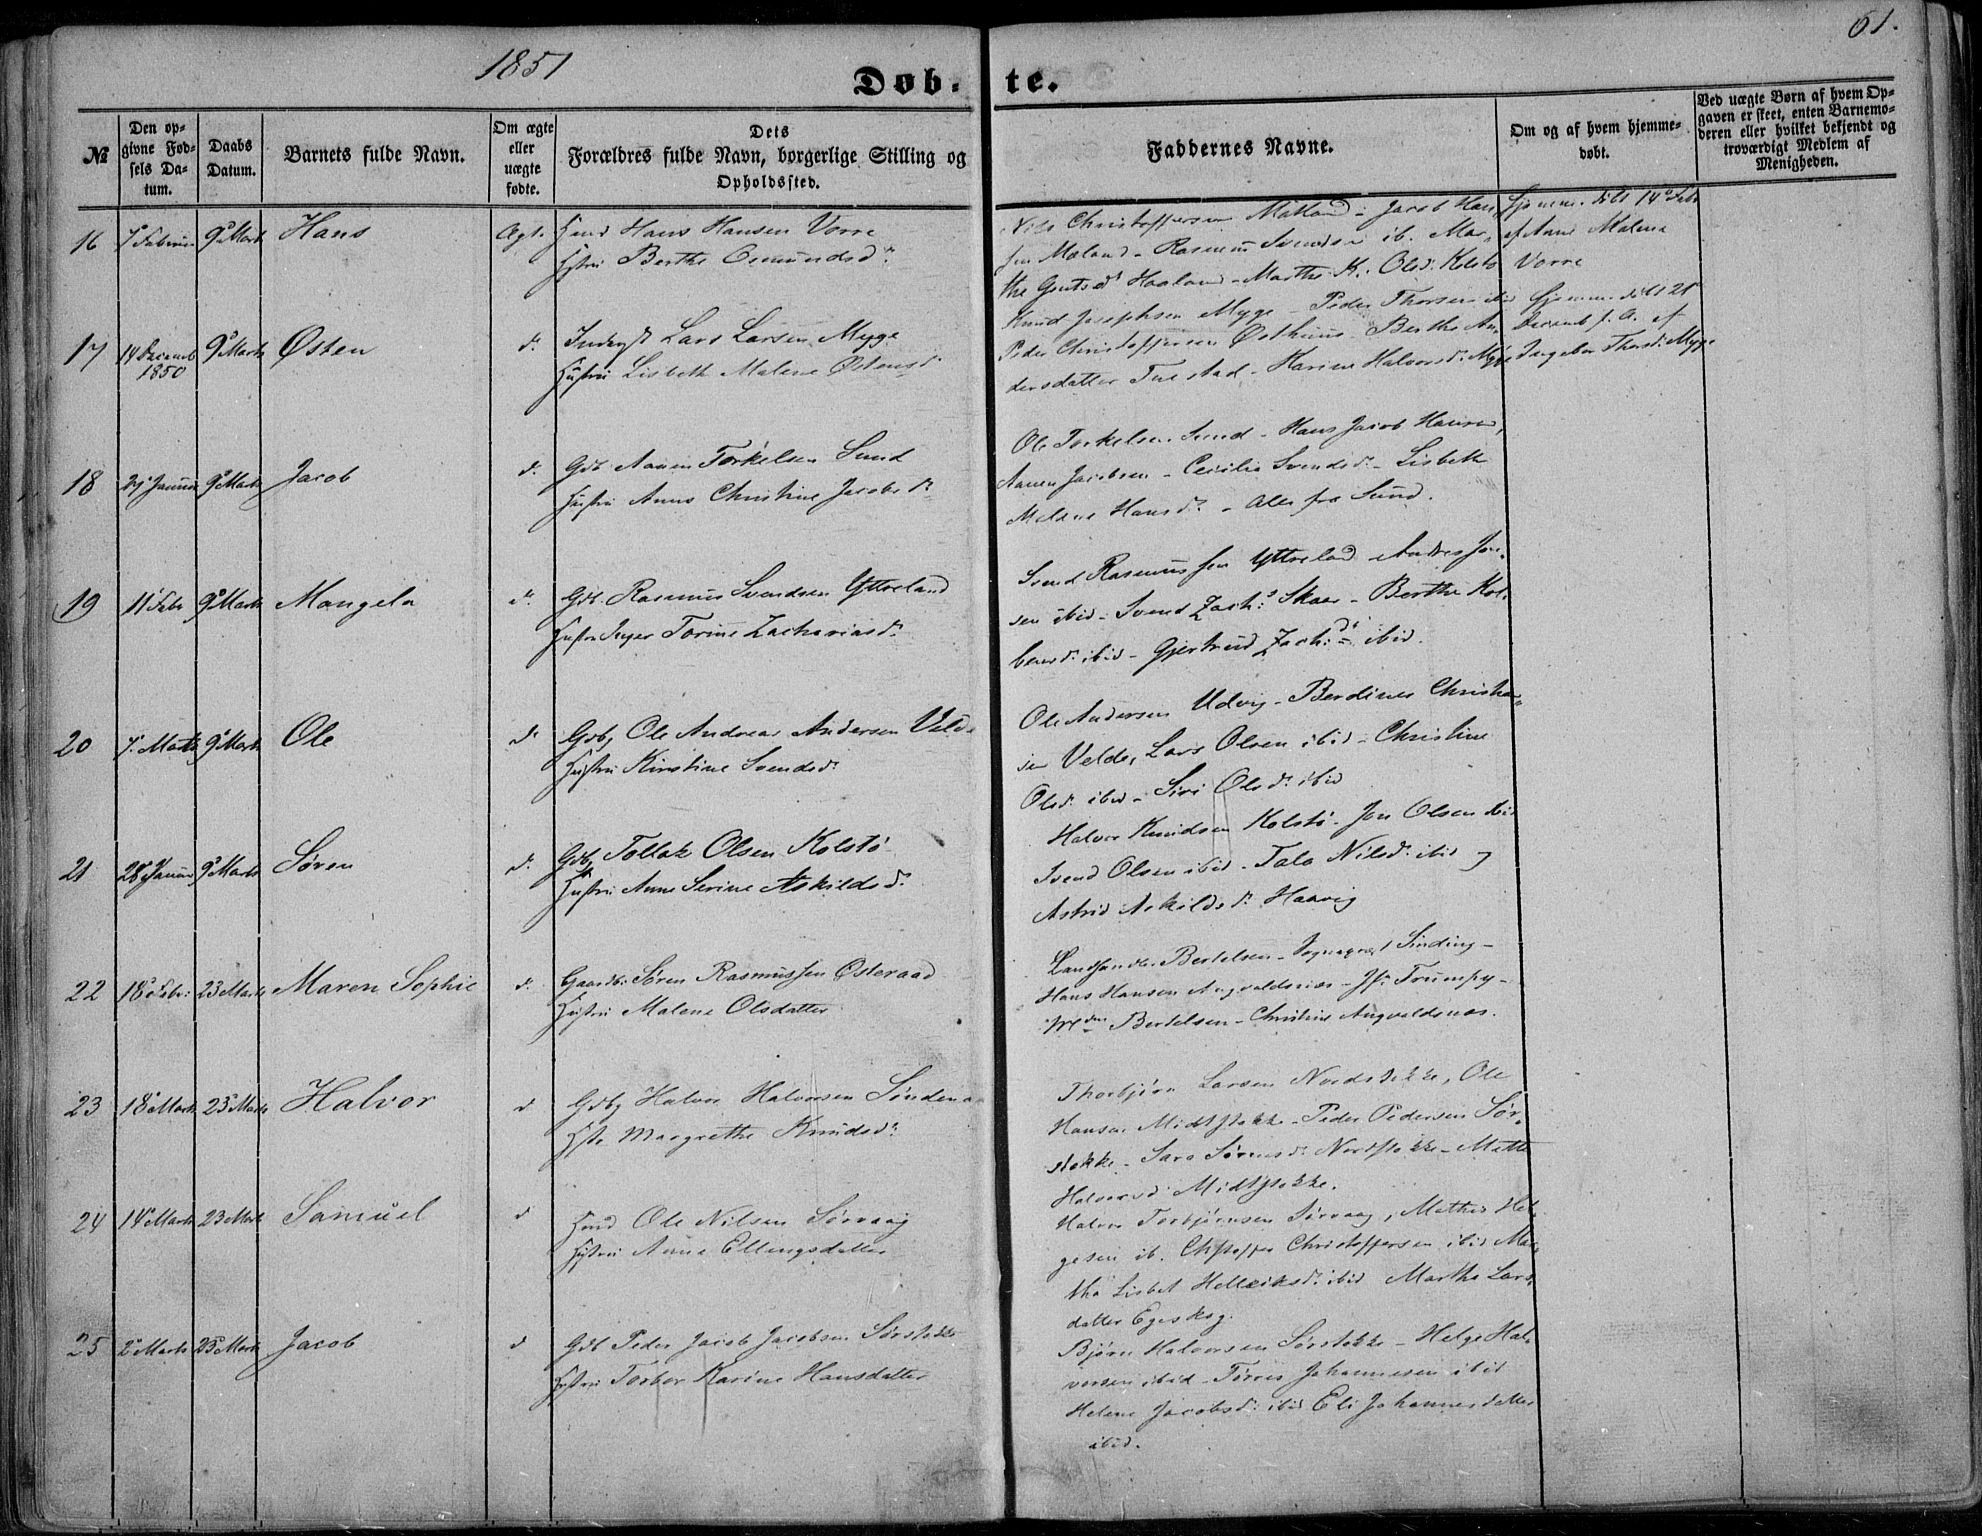 1851
61.
Døb-te.
№
Den op-
givne Fød-
sels Da-
tum.
Daabs
Datum.
Barnets fulde Navn.
Om ægte
eller
uægte
fødte.
Dets
Forældres fulde Navn, borgerlige Stilling og
Opholdssted.
Faddernes Navne.
Om og af hvem hjemme-
døbt.
Ved uægte Børn af hvem Op-
gaven er skeet, enten Barnemo-
deren eller hvilket bekjendt og
troværdigt Medlem af
Menigheden.
16 9 Marts Hans Ægt. Hans Hansen Vorre
Hustru Berthe Osmundsd.
Nils Christoffersen Jacob Han
sen Mæland - Rasmus Svendsen ib. Mar-
the Haaland - Marthe K. Olsd. Kolstø
Hjemmedøbt 14 Feb
af Anne Malene
Vorre
17 14 Decemb 9 Marts Østen d. Lars Larsen Mygge
1850 Hustru Lisbeth Malene Østensd
Knud Josephsen Mygge - Peder Thorsen ibid
Peder Christoffersen Østhuus - Berthe An-
dersdatter - Karine Halvorsd. Mygge
Hjemmedøbt 21
Decemb f. A. af
Ingebor Thorsd. Mygge
18 Januar 9 Marts Jacob d. Gdb Aanen Torkelsen Sund
Hustru Anne Christine Jacobsd.
Ole Torkelsen Sund - Hans Jacob Hansen,
Aanen Jacobsen - Cecilie Svendsd. - Lisbeth
Malene Hansd. - Alle fra Sund.
19 11 Febr 9 Marts Mangela d. Gdb. Rasmus Svendsen Ytreland
Hustru Inger Torine Zachariasd.
Svend Rasmussen Ytreland Andres Jon-
sen ibid - Svend Zach: Skaar - Berthe Kol-
bensd. ibid - Gjertrud Zach: d. ibid.
20 7 Marts 9 Marts Ole d. Gdb, Ole Andreas Andersen Velde
Hustru Kirstine Svendsd.
Ole Andersen Udvig - Berdines Christia-
sen Velde, Lars Olsen ibid - Christine
Olsd. ibid - Siri Olsd. ibid
21 28 Januar 9 Marts Søren d. Gdb, Tollak Olsen Kolstø
Hustru Anne Serine Askildsd.
Halvor Knudsen Kolstø - Jon Olsen ibid
Svend Olsen ibid - Tala Nilsd. ibid
Astrid Askildsd. Haavig
22 18 Febr: 23 Marts Maren Sophie d. Gaardb: Søren Rasmussen Østeraad
Hustru Malene Olsdatter
Landhandler Bertelsen - Sognepræst Sinding -
Hans Hansen Augvaldsnæs - Jfr. Trumpy -
Mdm Bertelsen - Christine Augvaldsnæs.
23 18 Marts 23 Marts Halvor d Gdbg Halvor Halvorsen Søndena
Margrethe Knudsd.
Thorbjørn Larsen Nordstokke, Ole
Hansen Midtstokke - Peder Pedersen Sør-
stokke - Sara Sørensd. Nordstokke - Mette
Halvorsd Midtstokke.
24 14 Marts 23 Marts Samuel d Ole Nilsen Sørvaag
Hustru Anne Ellingsdatter
Halvor Torbjørnsen Sørvaag, Mathis Hel-
gesen ib. Christoffersen ibid Mar-
tha Lisbet ibid Martha Lars-
datter Egeskog.
25 2 Marts 23 Marts Jacob d Gdb Peder Jacob Jacobsen Sørstokke
Hustru Torbor Karine Hansdatter
Bjørn Halvorsen Sørstokke - Helge Hal-
vorsen ibid - Tørres Johannesen ibid
Helene Jacobsd. ibid Eli Johannesdatter
ibid.